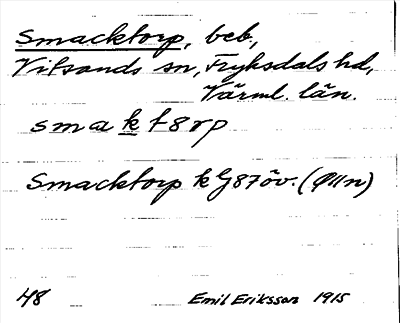 Smacktorp, beb,
Vitsands sn, Fryksdals hd,
Värml. län.
smakt8rp
Smacktorp k G87öv. (Ø11n)
48 Emil Eriksson 1915